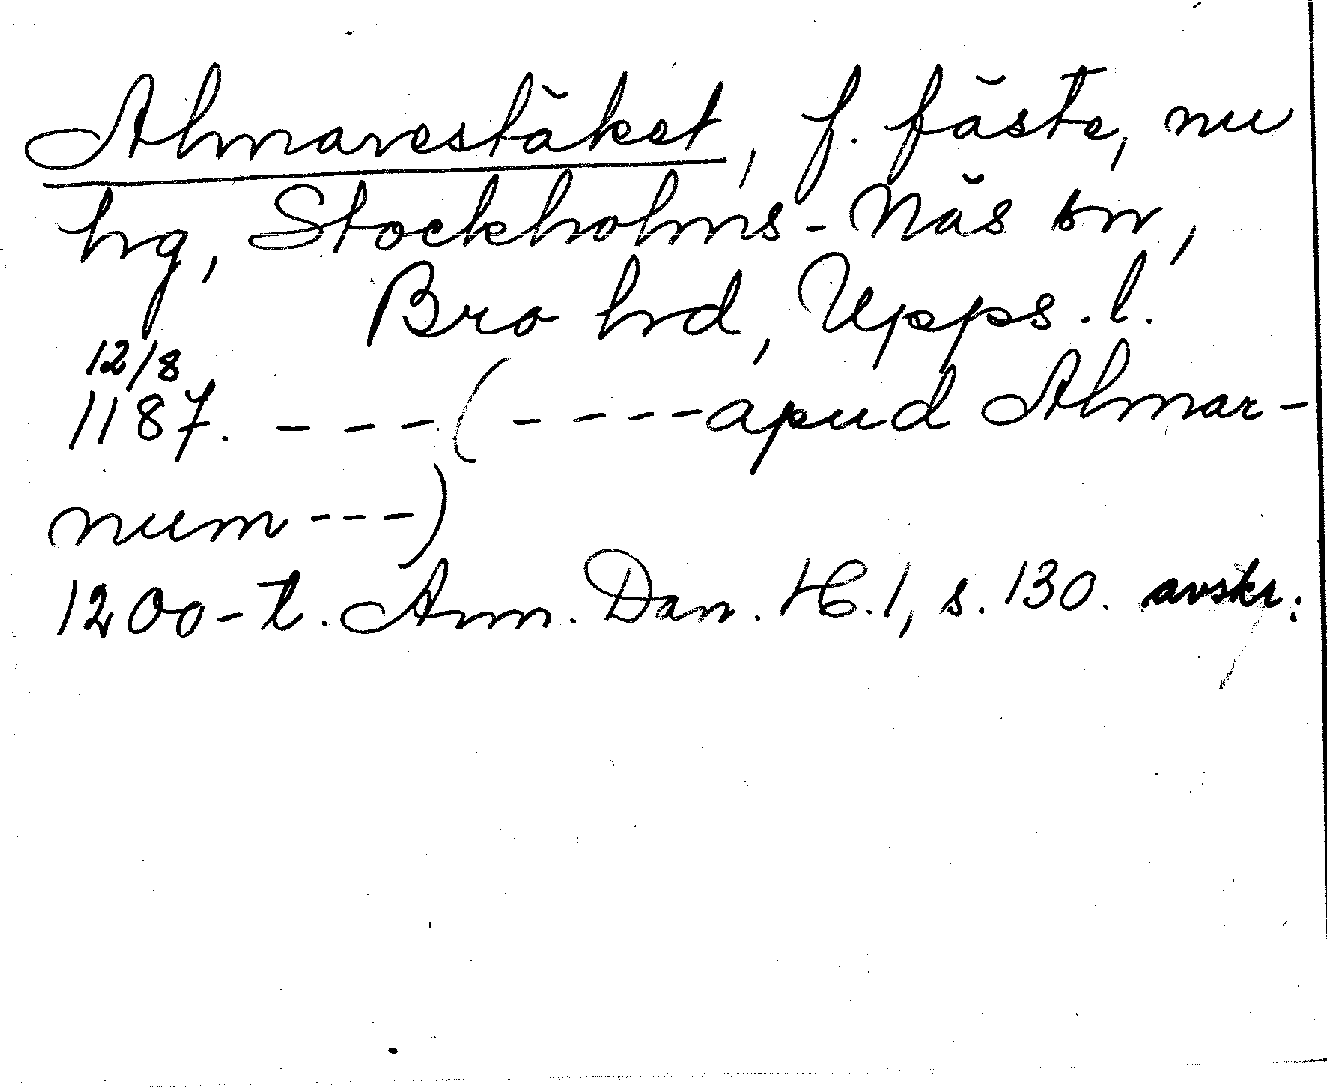 Almarestäket, f. fäste, nu
hg, Stockholms-Näs sn,
Bro hd, Upps. l.
12/8
1187. ---(----apud Almar-
num---)
1200-t. Ann. Dan. H. 1, s. 130. avskr.